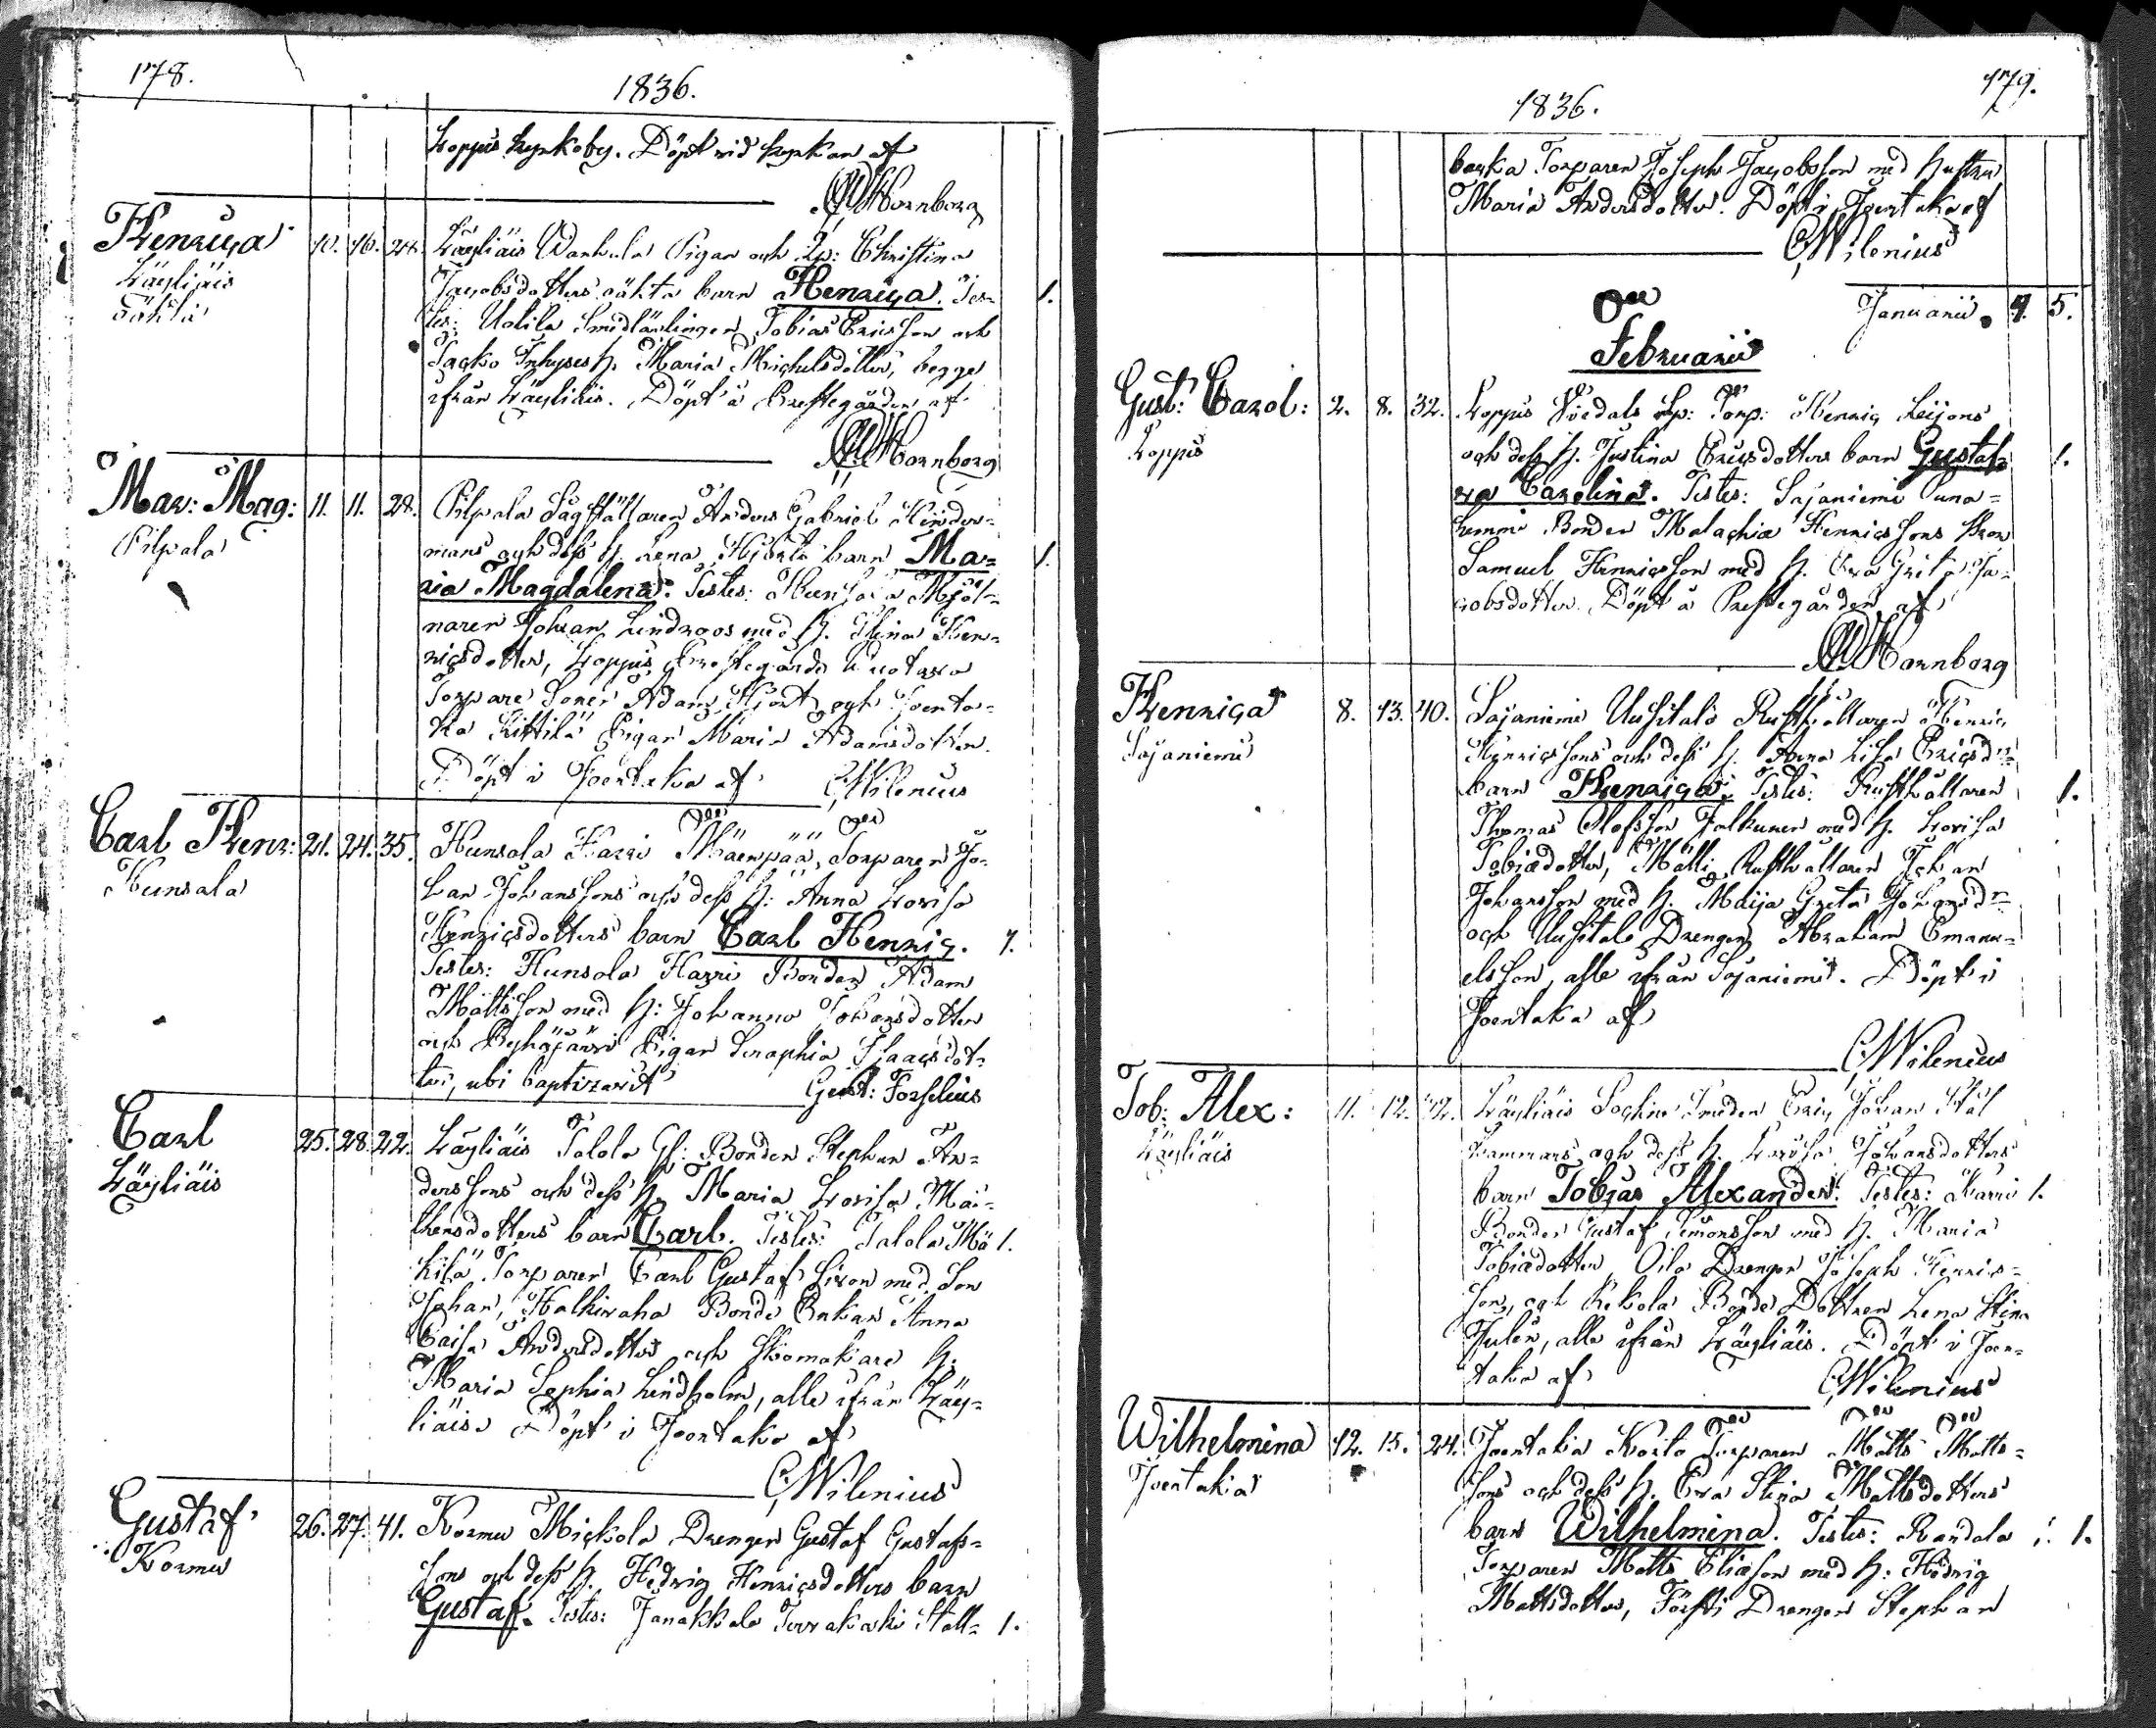 178.
1836.
Loppis Kyrkoby. Döpt vid Kyrkan af
Hornborg
Henrica 10. 16. 28. Läyliäis Pigan och Christina
Läyliäis Jacobsdotters oäkta barn Henrica. Tes- 1.
tes: Uotila Smidlärlingen Tobias Ericsson och
Maria Michelsdotter, begge
ifrån Läyliäis. Döpt å Prestegården af
Hornborg
Mar: Mag: 11. 11. 28. Pilpala Anders Gabriel Hinder-
Pilpala mans och dess h. Lena Hjorts barn Ma- 1.
ria Magdalena. Testes: Hunsala Mjöl-
naren Johan Lindroos med h. Stina Hen-
ricsdotter, Loppis Prestegårds
Torpare Sonen Adam Hjort och Joenta-
ka Kittilä Pigan Maria Adamsdotter.
Döpt i Joentaka af CWilenius
Carl Henr: 21. 24. 35. Hunsala Harri Mäenpää Torparen Jo-
Hunsala han Johanssons och dess h: Anna Lovisa
Henricsdotters barn Carl Henric. 1.
Testes: Hunsala Harri Bonden Adam
Mattsson med h: Johanna Johansdotter
och Pigan Seraphia Isaacsdot-
ter, ubi baptizavit Gust: Forselius
Carl 25. 28. 22. Läyliäis Talola Bonden Stephan An-
Läyliäis derssons och dess h. Maria Lovisa Mat-
thensdotters barn Carl. Testes: Talola Mä- 1.
kilä Torparen Carl Gustaf med Son
Johan, Bonde Enkan Anna
Caisa Andersdotter och Skomakare h.
Maria Sophia Lindholm, alle ifrån Läy-
liäis. Döpt i Joentaka af
CWilenius
Gustaf 26. 27. 41. Kormu Mickola Drengen Gustaf Gustafs-
Kormu sons och dess h. Hedvig Henricsdotters barn
Gustaf. Testes: Janakkala Tervakoski 1.
1836.
179.
backa Torparen Joseph Jacobsson med hustru
Maria Andersdotter. Döpt i Joentaka af
CWilenius
Januarii 5.
Februarii
Gust: Carol: 2. 8. 32. Loppis Torp: Henric Leijons
Loppis och dess h. Justina Ericsdotters barn Gusta- 1.
va Carolina. Testes: Sajaniemi Puna-
Bonden Malachia Henricssons Son
Samuel Henricsson med h. Eva Greta Ja-
cobsdotter. Döpt å Prestegården af
Hornborg
Henrica 8. 13. 40. Sajaniemi Uusitalo Rusthållaren Henric
Sajaniemi Henricssons och dess h. Anna Lisa Ericsdr
barn Henrica. Testes: Rusthållaren 1.
Thomas Olofsson Jalkunen med h. Lovisa
Tobiædotter, Mälli Rusthållaren Johan
Johansson med h. Maija Greta Johansdr
och Uusitalo Drengen Abraham Emanu-
elsson, alle ifrån Sajaniemi. Döpt i
Joentaka af
CWilenius
Tob: Alex: 11. 12. 42. Läyliäis Smeden Eric Johan Stål-
Läyliäis hammars och dess h. Lovisa Johansdotters
barn Tobias Alexander. Testes: Harri 1.
Bonden Gustaf Simonsson med h. Maria
Tobiædotter, Drengen Joseph Henrics-
son, och Rekola Bonde Dottren Lena Stina
Julin, alle ifrån Läyliäis. Döpt i Joen-
taka af CWilenius
Wilhelmina 12. 15. 24. Joentaka Torparen Matts Matts-
Joentaka sons och dess h. Eva Stina Mattsdotters
barn Wilhelmina. Testes: 1.
Torparen Matts Eliæson med h: Hedvig
Mattsdotter, Drengen Stephan